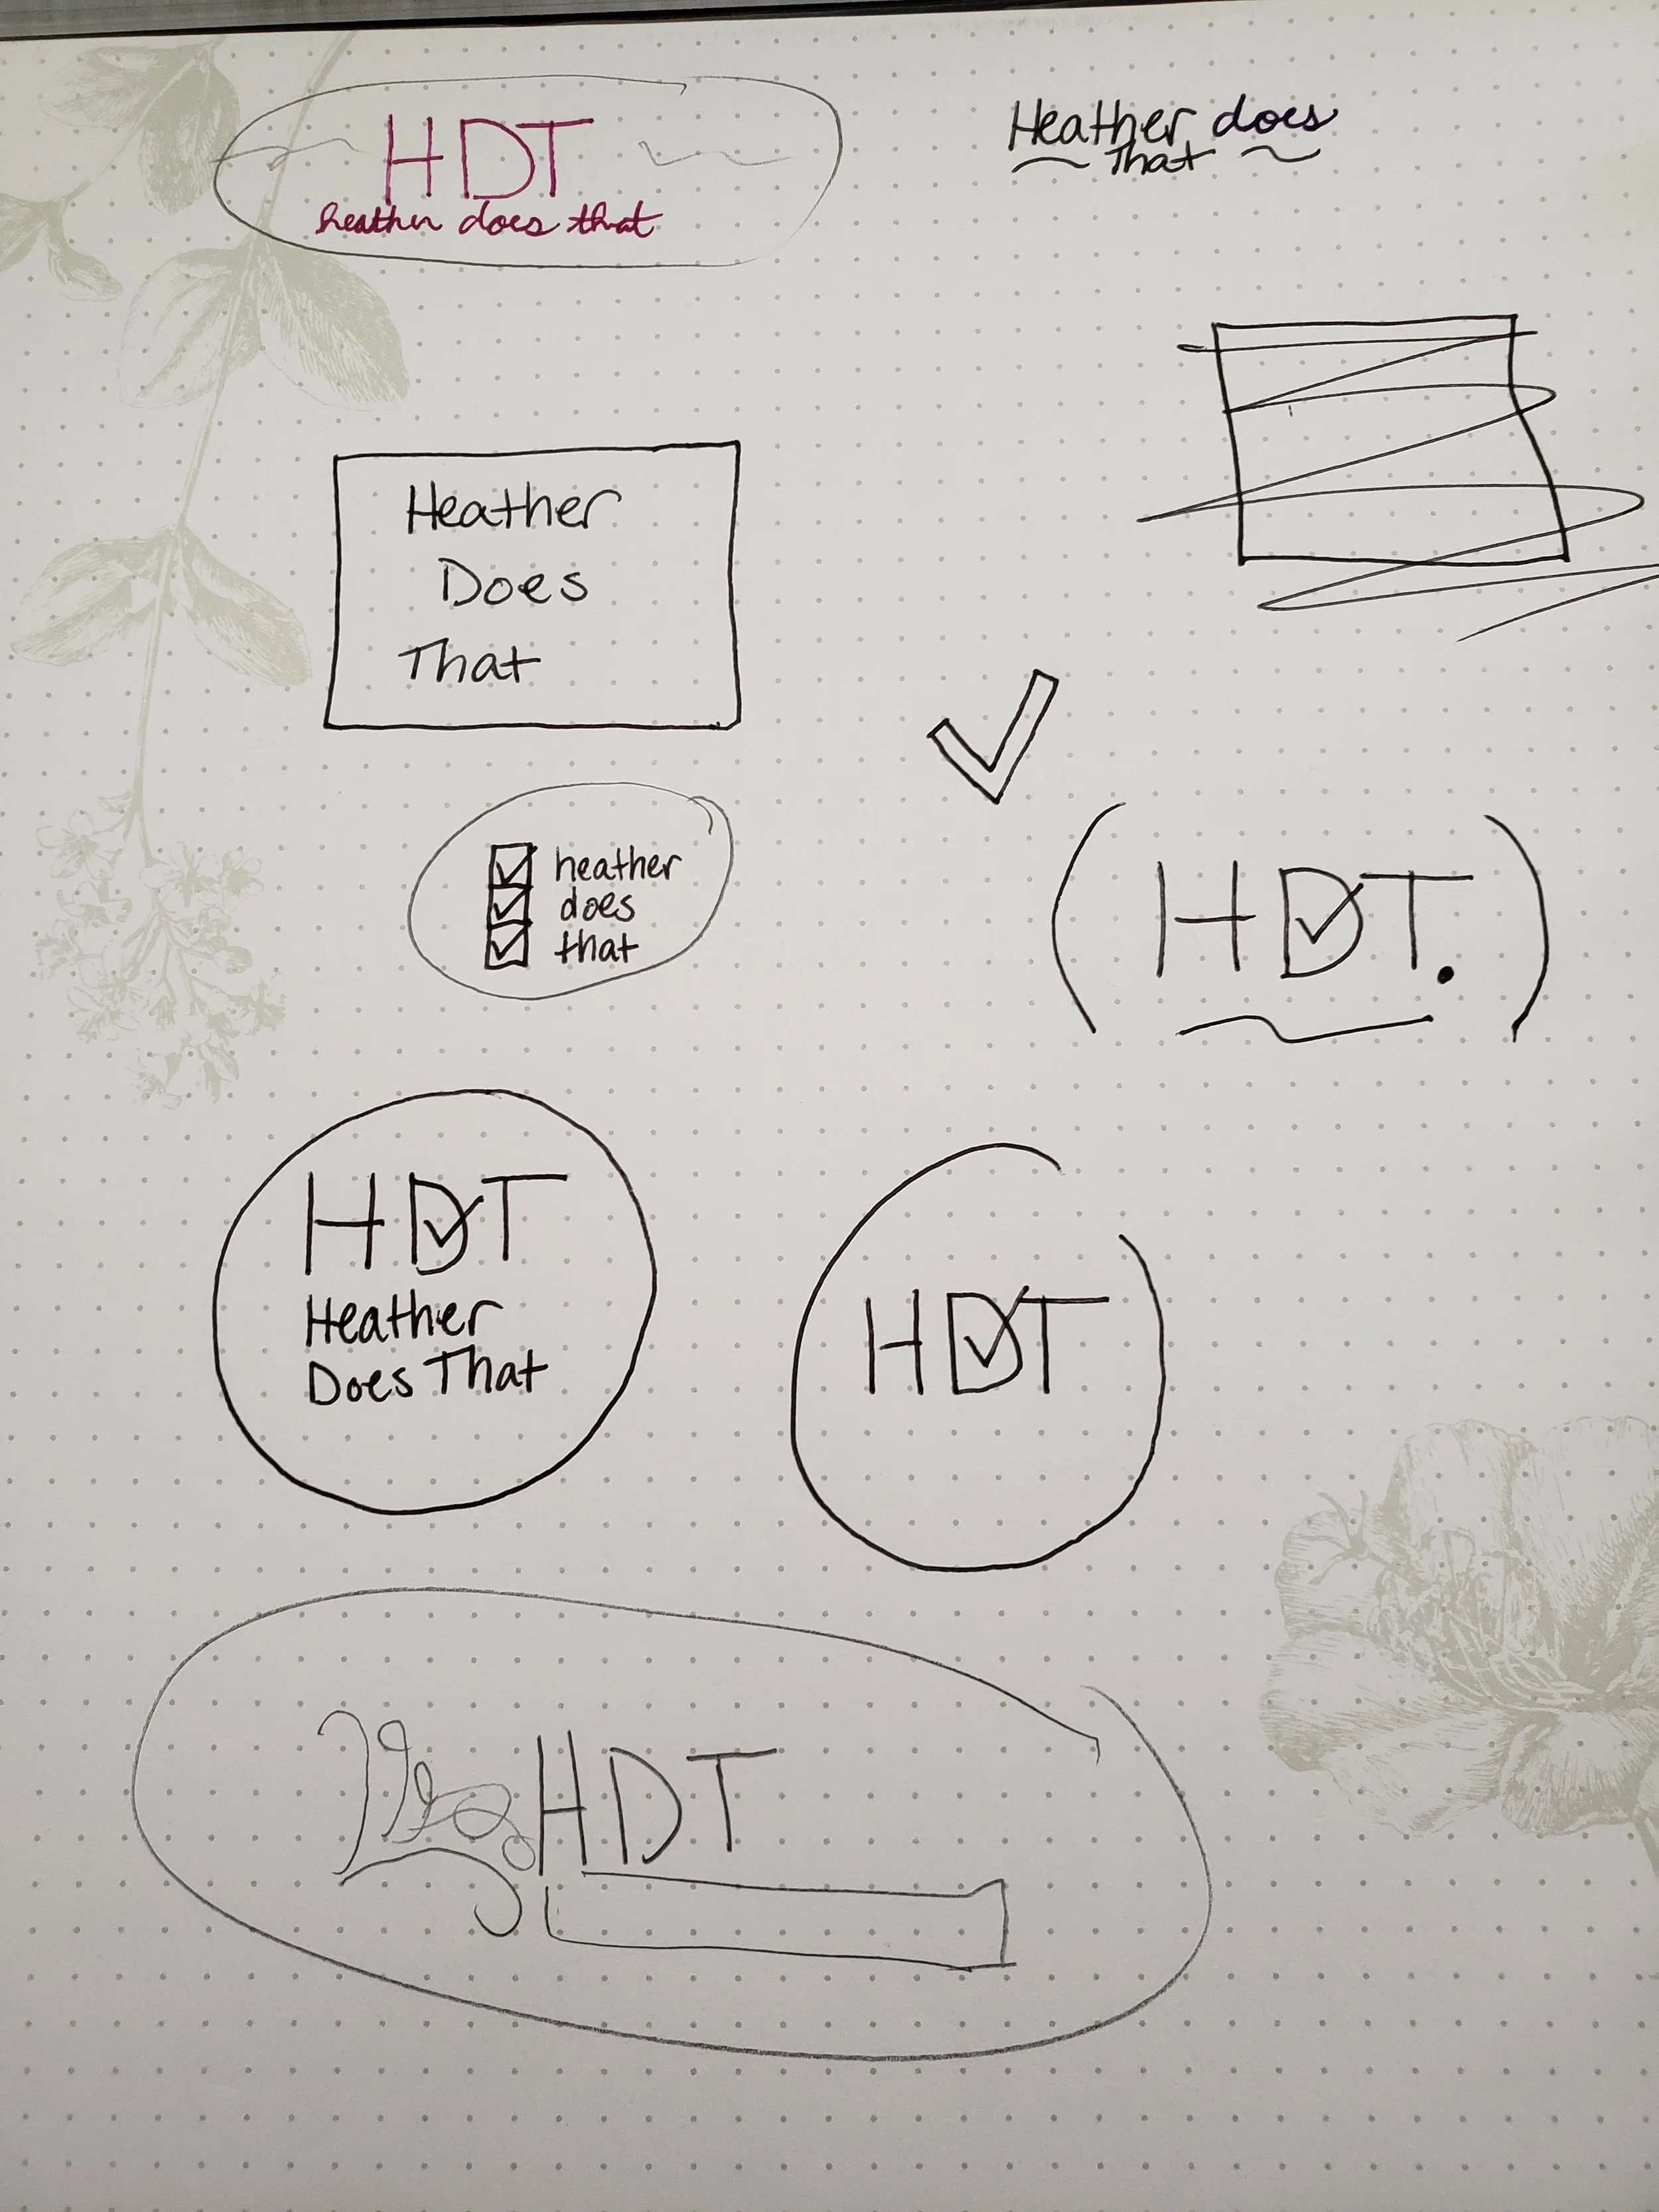 HDT
heather does that
Heather does
That
Heather
Does
That
heather
does
that
HDT.
HDT
Heather
Does That
HDT
HDT